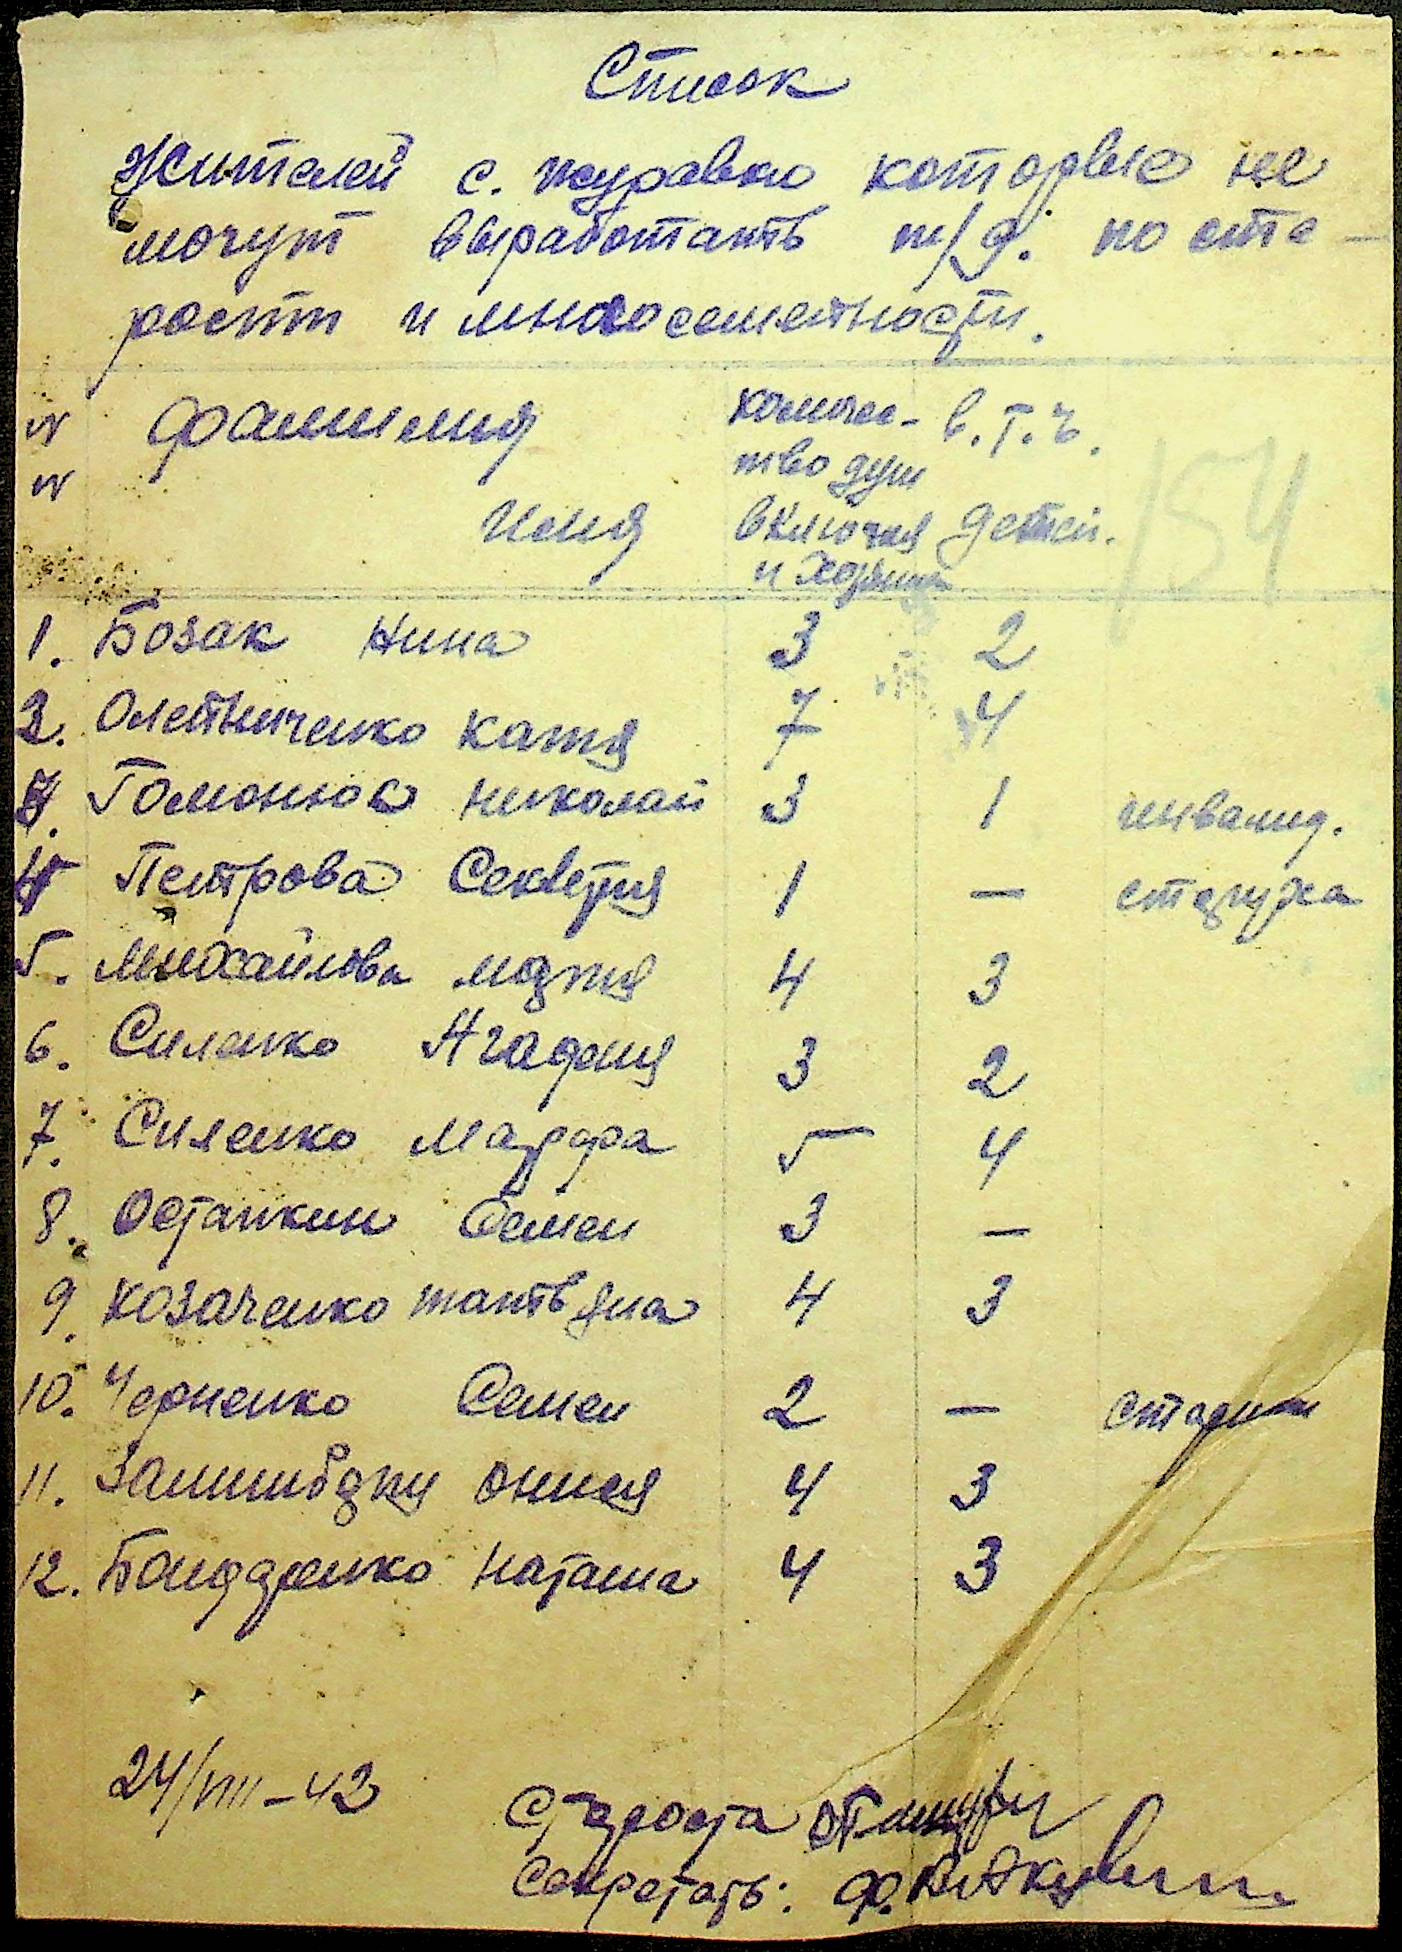 Список
Жителей с. Журавко которые не
могут выработать т/д. по ста-
рости и многосемейности.
№ Фамилия количес- в. т. ч.
№ тво душ
имя включая детей.
и хозяина
154
1. Бозак Нина 3 2
2. Олейниченко Катя 7 4
3. Гомонюк Николай 3 1 инвалид.
4 Петрова Секветия 1 — старуха
5. Михайлова Мотя 4 3
6. Силенко Агафия 3 2
7. Силенко Марфа 5 4
8. Остапкин Семен 3 —
9. Козаченко Татьяна 4 3
10. Черненко Семен 2 — старик
11. Онися 4 3
12. Бондаренко Наташа 4 3
24/VIII-42
Староста
Секретарь: